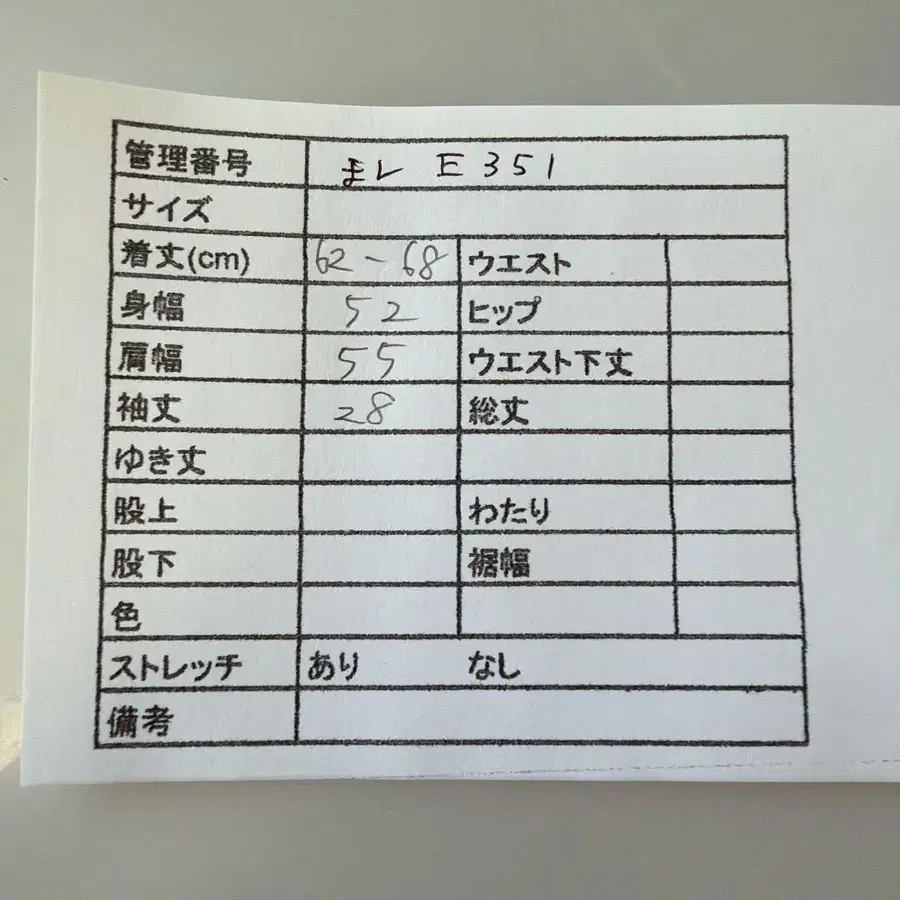 管理番号 まレ E351
サイズ
着丈(cm) 62-68 ウエスト
身幅 52 ヒップ
肩幅 55 ウエスト下丈
袖丈 28 総丈
ゆき丈
股上 わたり
股下 裾幅
色
ストレッチ あり なし
備考